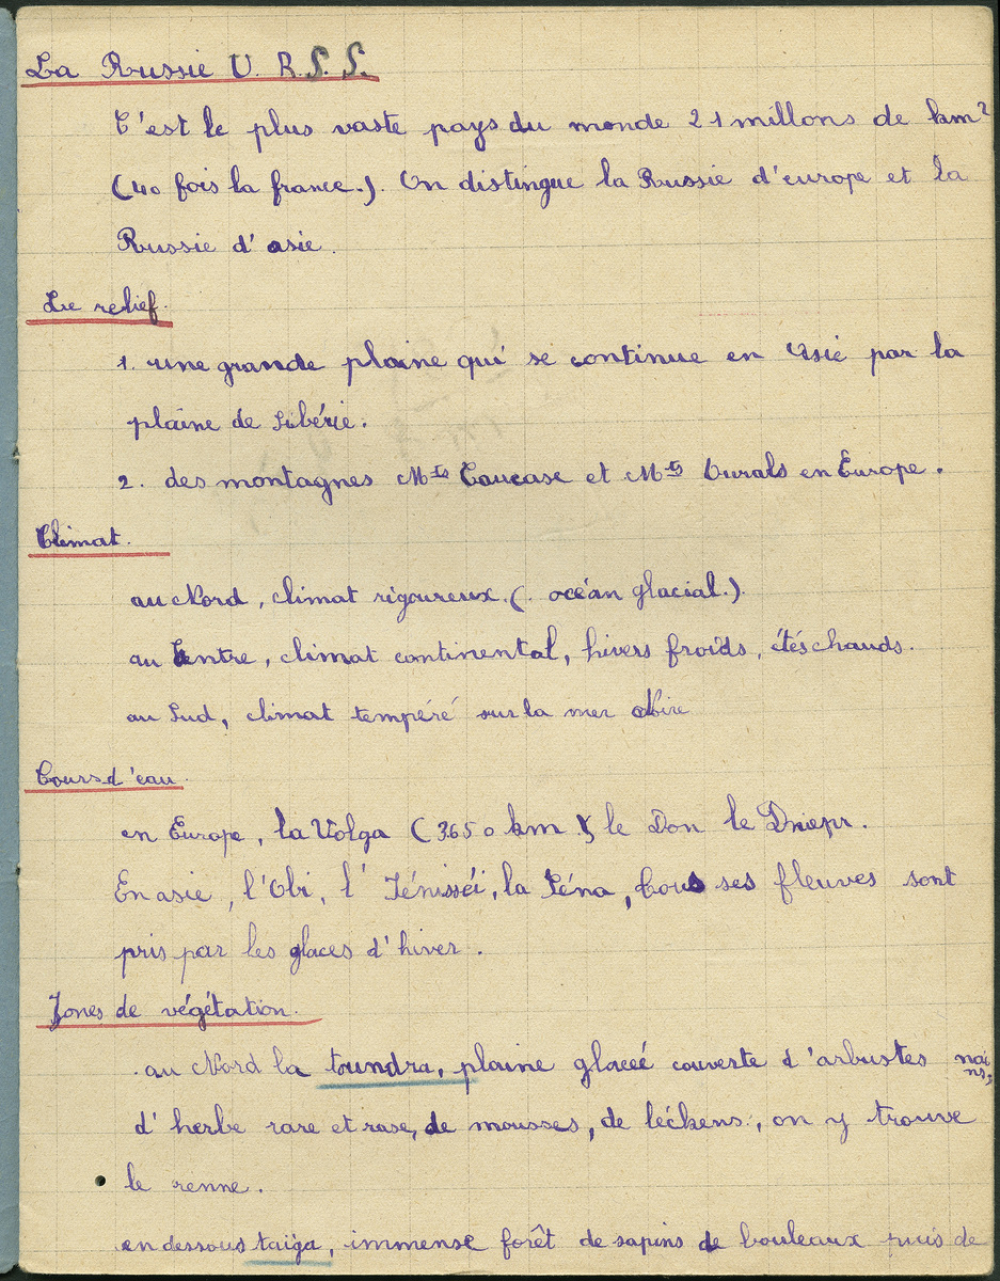 La Russie U. R.S.S.
C'est le plus vaste pays du monde 21 millons de km²
(40 fois la france.). On distingue la Russie d'europe et la
Russie d'asie.
Le relief.
1. une grande plaine qui se continue en Asie par la
plaine de Sibérie.
2. des montagnes Mts Caucase et Mts Ourals en Europe.
Climat.
au Nord, climat rigoureux. (. océan glacial.).
au Centre, climat continental, hivers froids, étés chauds.
au Sud, climat tempéré sur la mer Noire
Cours d'eau.
en Europe, la Volga (3650 km), le Don le Dniepr.
En asie, l'Obi, l'Iénisséi, la Léna, tous ses fleuves sont
pris par les glaces d'hiver.
Zones de végétation.
. au Nord la toundra, plaine glacéé couverte d'arbustes nains,
d'herbe rare et rase, de mousses, de léckens., on y trouve
le renne.
en dessous taïga, immense forêt de sapins de bouleaux puis de